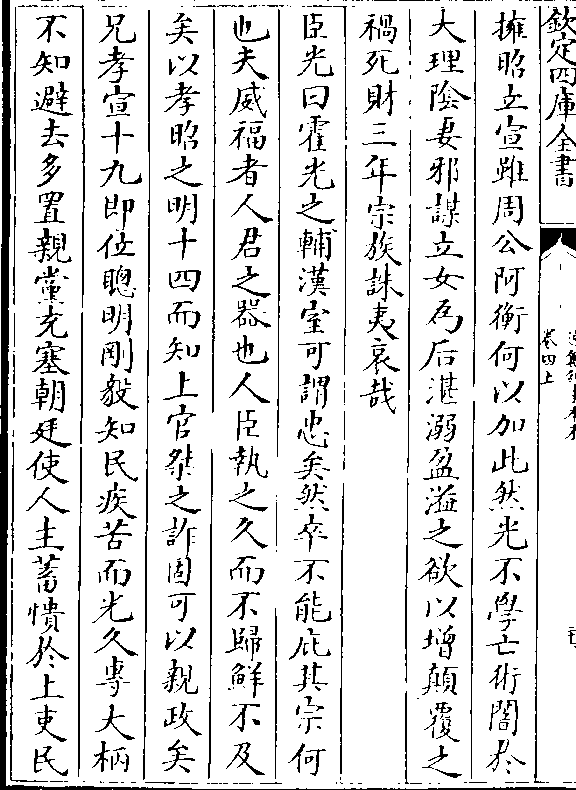 欽定四庫全書
卷四上
擁昭立宣雖周公阿衡何以加此然光不學亡術闇於
大理陰妻邪謀立女為后湛溺盈溢之欲以增顛覆之
禍死財三年宗族誅夷哀哉
臣光曰霍光之輔漢室可謂忠矣然卒不能庇其宗何
也夫威福者人君之器也人臣執之久而不歸鮮不及
矣以孝昭之明十四而知上官桀之詐固可以親政矣
况孝宣十九即位聰明剛毅知民疾苦而光久專大柄
不知避去多置親黨充塞朝廷使人主蓄憤於上吏民